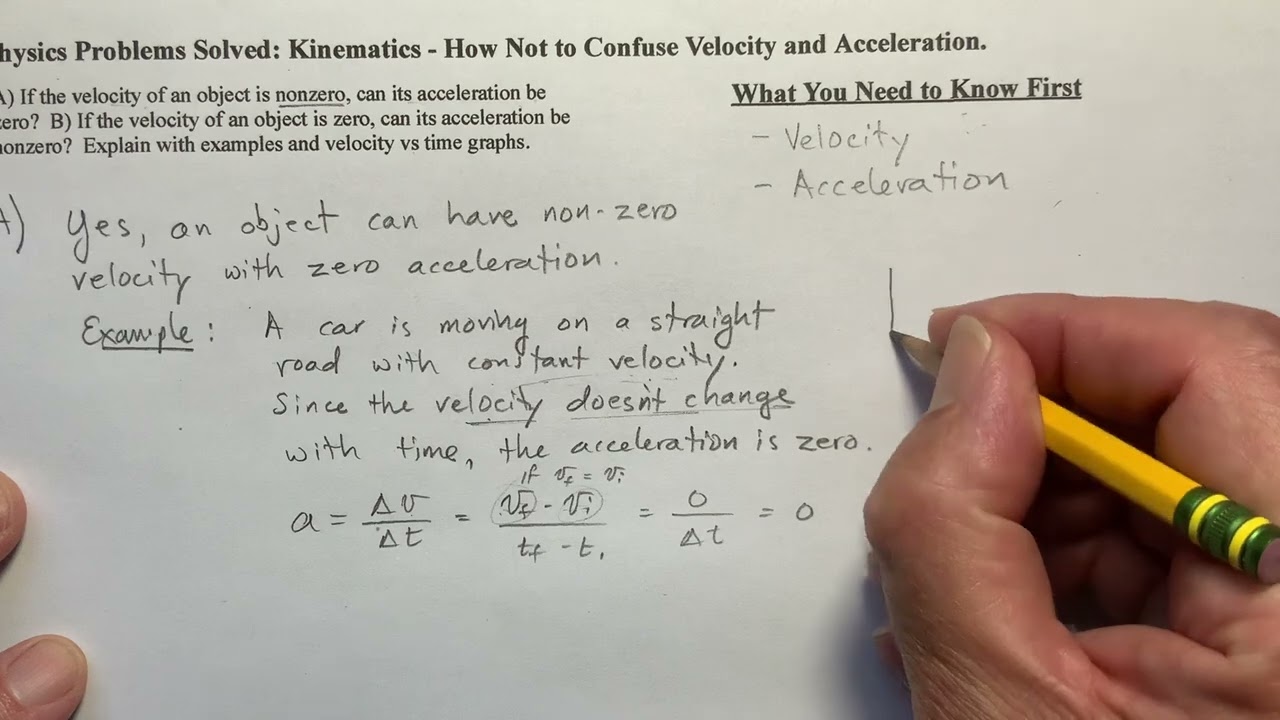 hysics Problems Solved: Kinematics - How Not to Confuse Velocity and Acceleration.
A) If the velocity of an object is nonzero, can its acceleration be
ero? B) If the velocity of an object is zero, can its acceleration be
nonzero? Explain with examples and velocity vs time graphs.
What You Need to Know First
- Velocity
- Acceleration
A) Yes, an object can have non-zero
velocity with zero acceleration.
Example: A car is moving on a straight
road with constant velocity.
Since the velocity doesn't change
with time, the acceleration is zero.
if vf = vi
a = Δv/Δt = (vf - vi)/(tf - ti) = 0/Δt = 0